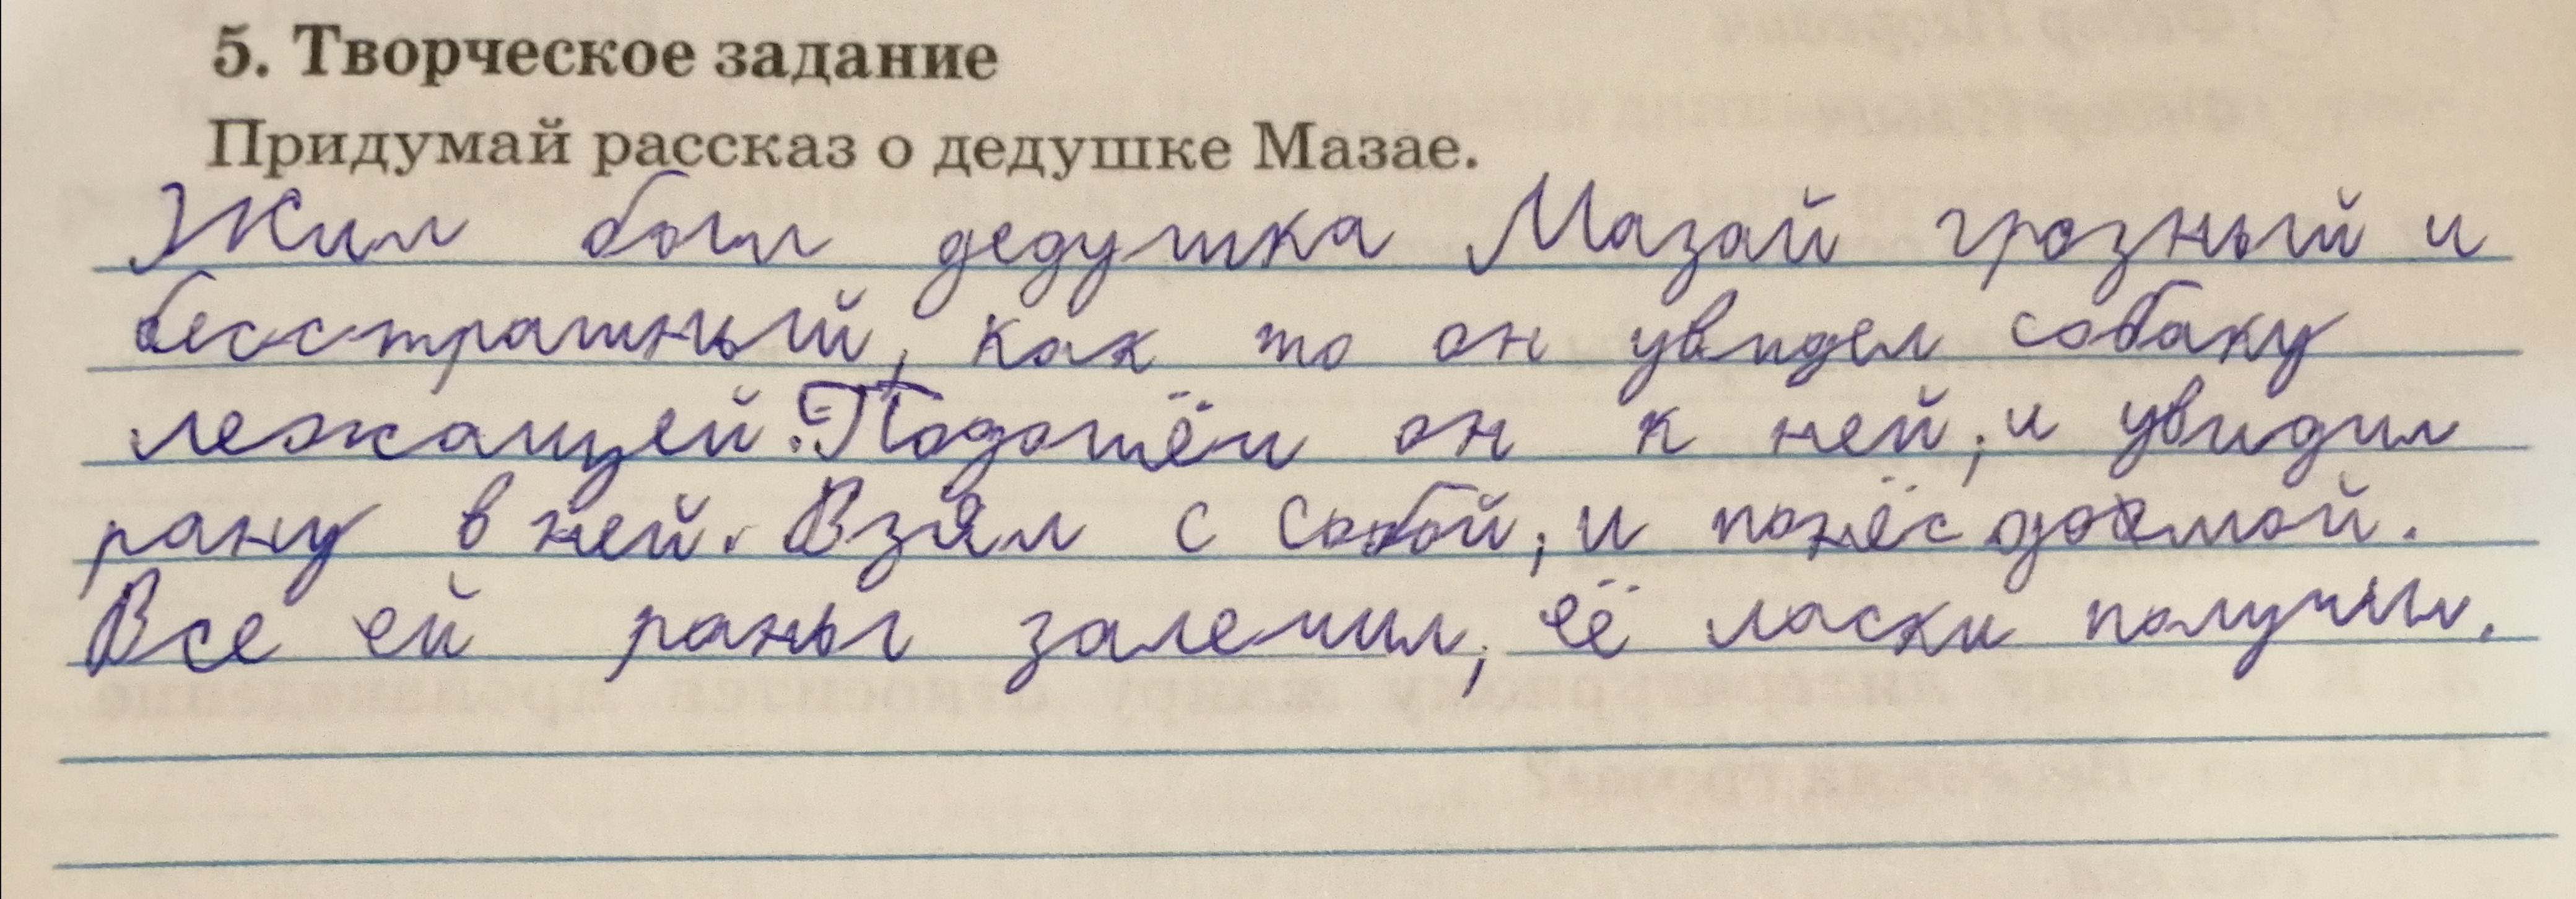 5. Творческое задание
Придумай рассказ о дедушке Мазае.
Жил был дедушка Мазай грозный и
бесстрашный, как то он увидел собаку
лежащей. Подошёл он к ней, и увидил
рану в ней. Взял с собой, и понёс домой.
Все ей раны залечил, её ласки получил.